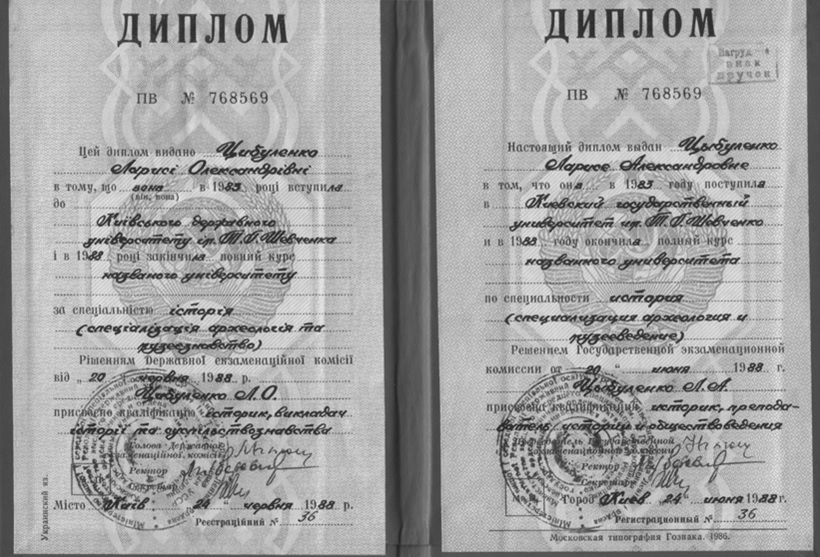 ДИПЛОМ
ПВ № 768569
Цей диплом видано Цибуленко
Ларисі Олександрівні
в тому, що вона в 1983 році вступила
(він, вона)
до Київського державного
університету ім. Т. Г. Шевченка
і в 1988 році закінчила повний курс
названого університету
за спеціальністю історія
(спеціалізація археологія та
музеєзнавство)
Рішенням Державної екзаменаційної комісії
від „20 " червня 1988 р.
Цибуленко Л. О.
присвоєно кваліфікацію історик, викладач
історії та суспільствознавства
Голова Державної
екзаменаційної комісії
Ректор
Секретар
Місто Київ 24 червня 1988 р.
Реєстраційний № 36
Украинский яз.
ДИПЛОМ
Нагруд
знак
вручен
ПВ № 768569
Настоящий диплом выдан Цыбуленко
Ларисе Александровне
в том, что она в 1983 году поступила
в Киевский государственный
университет им. Т. Г. Шевченко
и в 1988 году окончила полный курс
названного университета
по специальности история
(специализация археология и
музееведение)
Решением Государственной экзаменационной
комиссии от „20 " июня 1988 г.
Цыбуленко Л. А.
присвоена квалификация историк, препода-
ватель истории и обществоведения
Председатель Государственной
экзаменационной комиссии
Ректор
Секретарь
Город Киев 24 " июня 1988 г.
Регистрационный № 36
Московская типография Гознака. 1986.